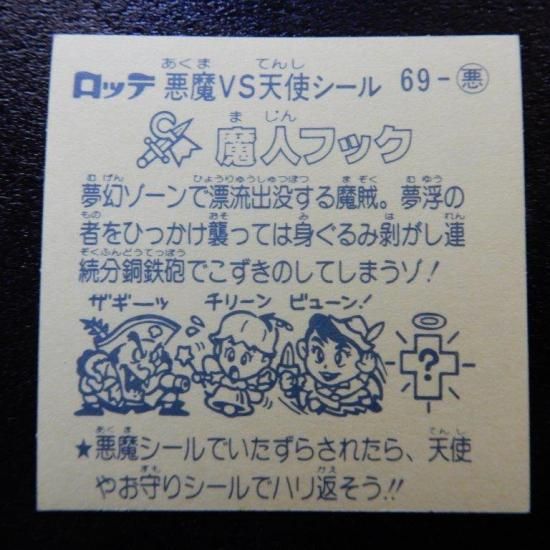 ロッテ 悪魔VS天使シール 69-悪
魔人フック
夢幻ゾーンで漂流出没する魔賊。夢浮の
者をひっかけ襲っては身ぐるみ剥がし連
続分銅鉄砲でこずきのしてしまうゾ！
ザギーッ チリーン ビューン！
?
★悪魔シールでいたずらされたら、天使
やお守りシールでハリ返そう!!